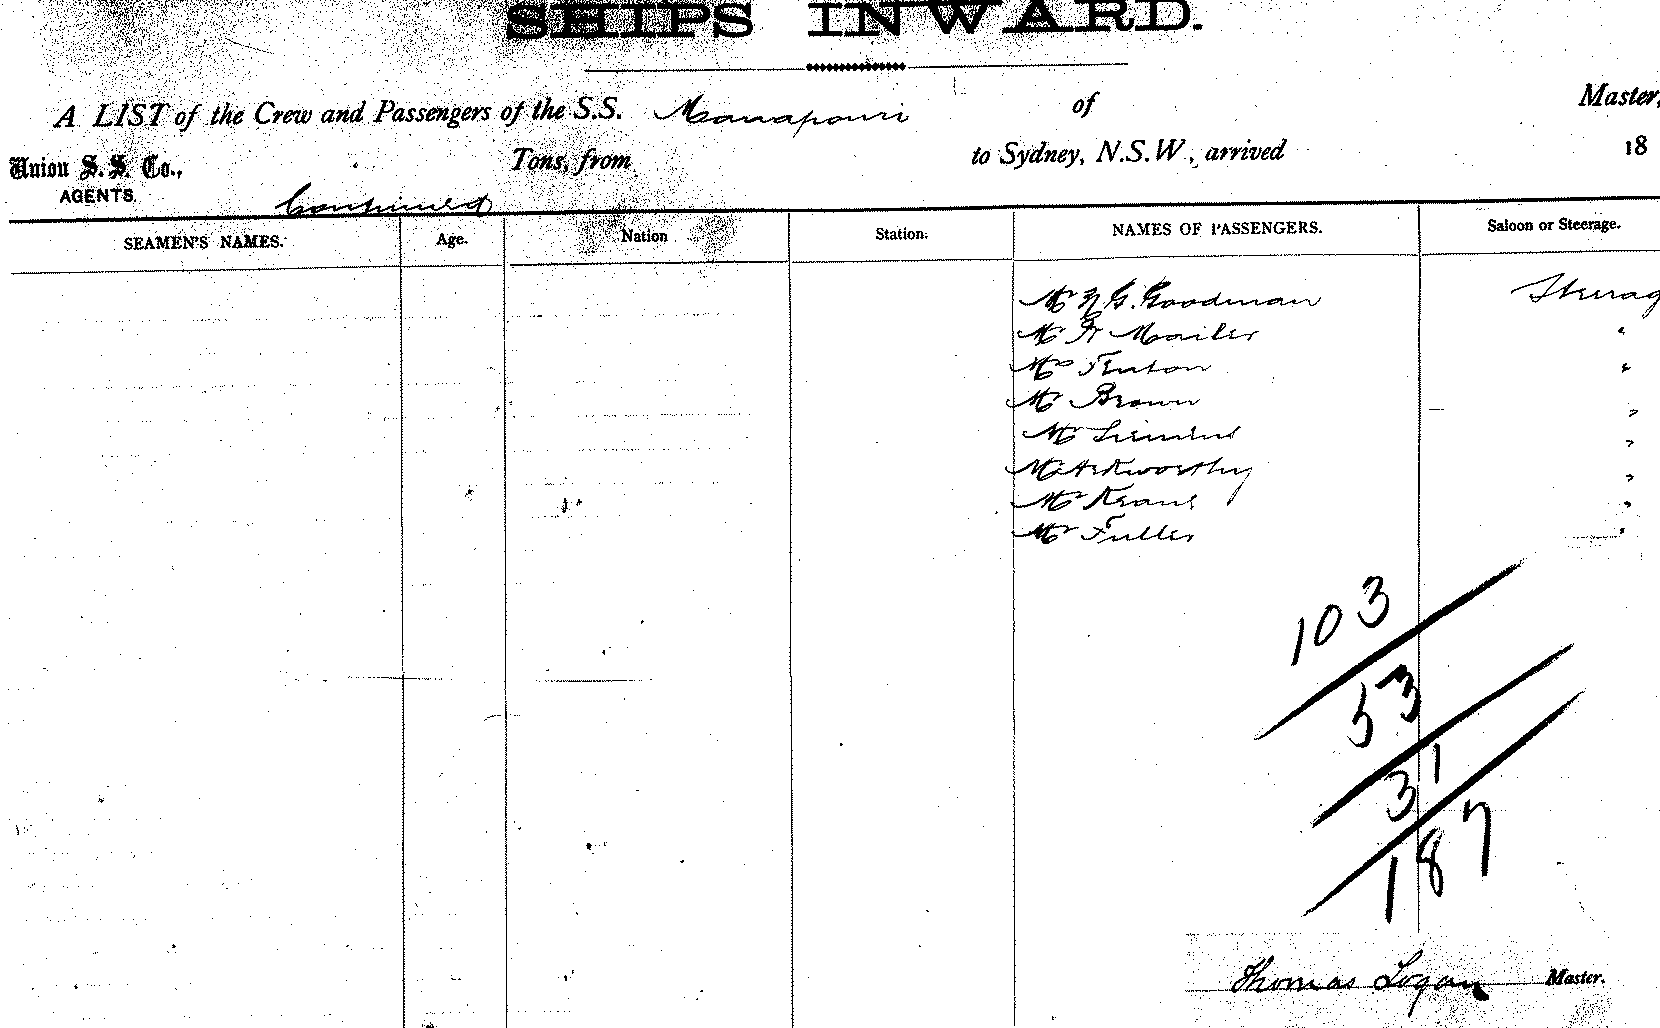 SHIPS INWARD.
A LIST of the Crew and Passengers of the S.S. Manapouri of Master,
Union S. S. Co., Tons, from to Sydney, N.S.W., arrived 18
AGENTS.
Continued
SEAMEN'S NAMES. Age. Nation Station. NAMES OF PASSENGERS. Saloon or Steerage.
Mr G. Goodman Steerag
Mr "
Mrs Fenton "
Mr Brown "
Mr "
Mr Arkworthy "
Mr "
Mr Fuller "
103
53
31
187
Thomas Logan Master.